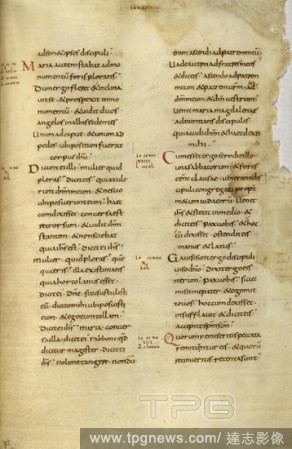 ad semetipsos discipuli.
Maria autem stabat ad mo
numentum foris plorans.
Dum ergo fleret & inclina
uit se & prospexit in mo
numentum. & uidit duos
angelos in albis sedentes
Unum ad caput & unum ad
pedes ubi positum fuerat
corpus ihu
Dicunt ei illi. mulier quid
ploras. Dicit eis. quia tule
runt dnm meum. & nescio
ubi posuerunt eum. haec
cum dixisset. conuersa est
retrorsum. & uidit ihm
stantem. & non sciebat
quia ihs est. Dicit ei ihs.
mulier quid ploras. quem
quaeris. illa existimans
quia hortolanus esset.
dicit ei. dne. si tu sustulisti
eum. dicito mihi ubi posuisti
eum. & ego eum tollam.
Dicit ei ihs. maria. conuer
sa illa. dicit ei. rabboni. quod
dicitur magister. dicit ei
ihs. noli me tangere. nondum
enim ascendi ad patrem meum
Uade autem ad fratres meos
& dic eis. ascendo ad patrem
meum & patrem uestrum.
dm meum & dm uestrum
uenit maria magdalene ad
nuntians discipulis
quia uidi dnm & haec dixit
mihi
Cum esset ergo sero die illo
una sabbatorum. & fores
essent clausae. ubi erant dis
cipuli congregati propter
metum iudaeorum. Uenit
ihs & stetit in medio. &
dicit eis. pax uobis. & hoc
cum dixisset. ostendit eis
manus & latus
Gauisi sunt ergo discipuli
uiso dno. Dixit ergo eis
iterum. pax uobis. sicut
misit me pater & ego mitto
uos. hoc cum dixisset.
insufflauit & dicit eis.
accipite spm scm
Quorum remiseritis peccata
remittuntur eis. & quorum
retinueritis retenta sunt
TPG
www.tpgnews.com / 達志影像